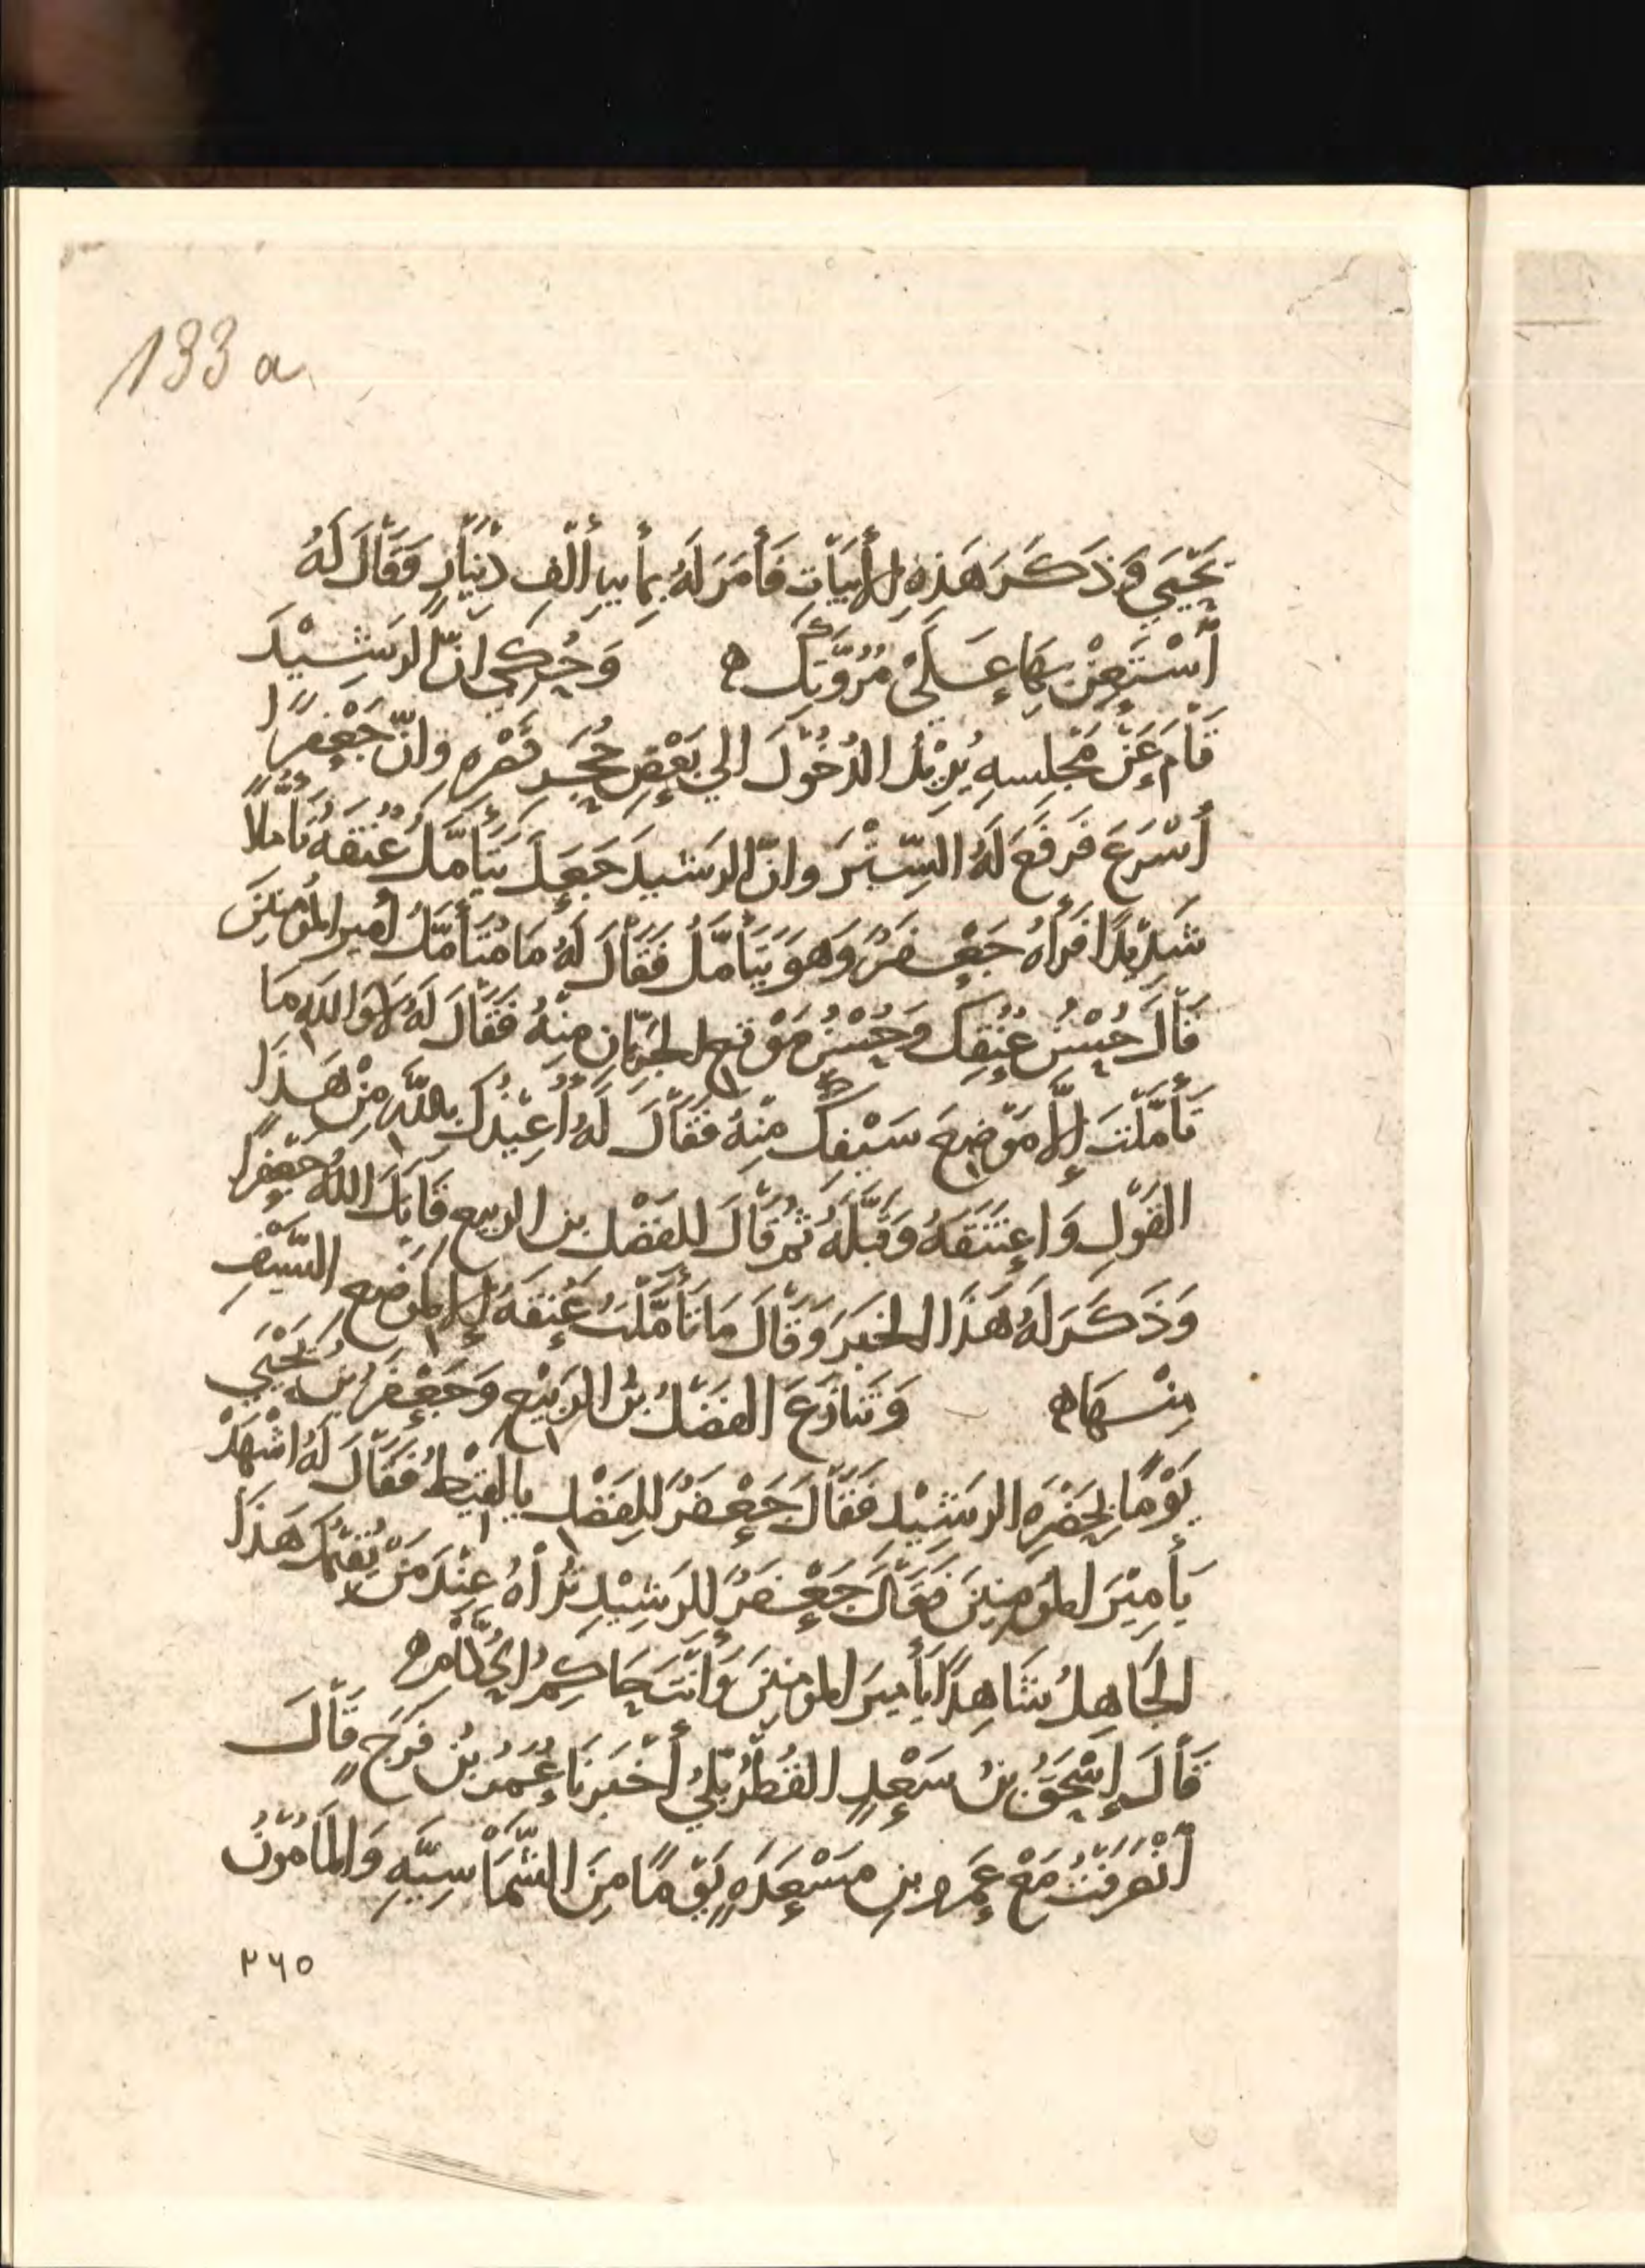 133 a
يَحْيَي وَذَكَرَ هَذِهِ الأَبْيَاتِ فَأَمَرَ لَهُ بِمأيهِ أَلْفِ دِيْنَارٍ وَقَالَ لَهُ
أسْتَعِنْ بِهَا عَلَىْ مُرُوَّتِكَ ه وَحُكِيَ انَّ الرَشِيْدَ
قَامَ عَنْ مَجْلِسِهِ يُرِيْدُ الدُخُوْلَ الي بَعْضِ حُجَرِ قَصْرِهِ وانّ جَعْفَرًا
أَسْرَعَ فَرَفَعَ لَهُ السِّتْرَ وانّ الرَشيدَ جَعَلَ يَتَأَمَّلُ عُنُقَهُ تَأَمُّلاً
شَدِيْدًا فَرَأهُ جَعْفَرٌ وَهوَ يَتَأَمَّلُ فَقَالَ لَهُ مَا مُتَأَمَّلُ أمير المُؤْمِنينَ
قَالَ حُسْنُ عُنُقِكَ وَحُسْنُ مَوْقع الجُرُبّانِ مِنْهُ فَقَالَ لَهُ لاَ وَاللهِ مَا
تَأَمَّلْتَ إِلاَّ مَوْضِعَ سَيْفِكَ مِنْهُ فَقَالَ لَهُ أُعِيْذُكَ بِاللهِ مِنْ هَذَا
القَوْلِ وَاعْتَنَقَهُ وَقَبَّلَهُ ثُمّ قَالَ لِلفَضْلِ بن الربيع قَاتَلَ اللهُ جَعْفَرًا
وَذَكَرَ لَهُ هَذَا الخَبَرَ وَقَالَ مَا تَأَمَّلْتُ عُنُقَهُ إِلا لِمَوْضعِ السَّيْفِ
مِنْهَا ه وَتَنَازَعَ الفَضْلُ بْنُ الرَبِيْعِ وَجَعْفَرُ بنُ يَحْيَي
يَوْمًا بِحَضْرَهِ الرَشِيْدِ فَقَالَ جَعْفَرٌ لِلفَضْلِ يا لَقِيْطُ فَقَالَ لَهُ اشْهَدْ
يَأمِيْرَ المُؤمِنِينَ فَقَالَ جَعْفَرٌ لِلرَشِيْدِ تُرَاهُ عِنْدَ مَنْ يُقِيْمُكَ هَذَا
الجَاهِلُ شَاهِدًا يَأَميرَ المؤمنينَ وَأَنْتَ حَاكِمُ الحُكَّامِ ه
قَالَ إِسْحَقُ بنُ سَعْدٍ القُطْرُبُّلِيُّ أَخْبَرَنَا عُمَرُ بنُ فَرَجٍ قَالَ
أنْصَرَفْتُ مَعْ عَمرو بنِ مَسْعَدَهٍ يَوْمًا مِنَ الشَّمَّاسِيَّهِ وَالمَأمُوْنُ
٢٦٥